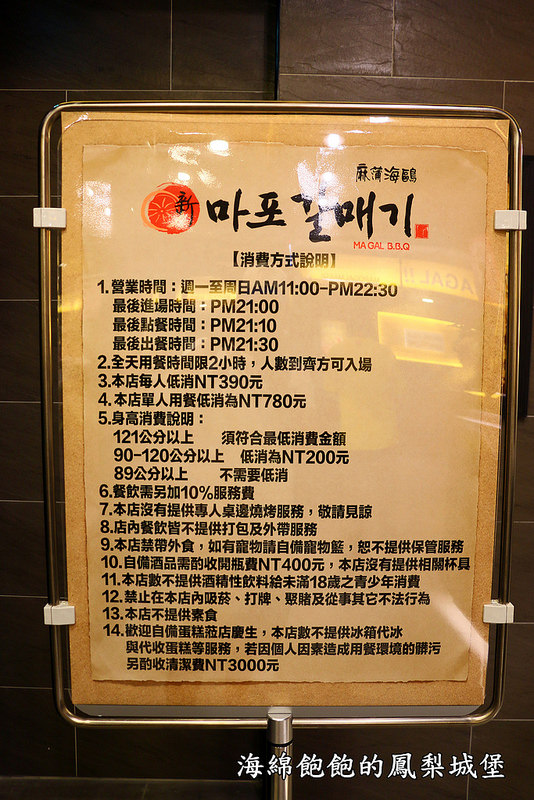 麻蒲海鷗
新 마포갈매기
MA GAL B.B.Q
【消費方式說明】
1.營業時間：週一至周日AM11:00-PM22:30
最後進場時間：PM21:00
最後點餐時間：PM21:10
最後出餐時間：PM21:30
2.全天用餐時間限2小時，人數到齊方可入場
3.本店每人低消NT390元
4.本店單人用餐低消為NT780元
5.身高消費說明：
121公分以上 須符合最低消費金額
90-120公分以上 低消為NT200元
89公分以上 不需要低消
6.餐飲需另加10%服務費
7.本店沒有提供專人桌邊燒烤服務，敬請見諒
8.店內餐飲皆不提供打包及外帶服務
9.本店禁帶外食，如有寵物請自備寵物籃，恕不提供保管服務
10.自備酒品需酌收開瓶費NT400元，本店沒有提供相關杯具
11.本店數不提供酒精性飲料給未滿18歲之青少年消費
12.禁止在本店內吸菸、打牌、聚賭及從事其它不法行為
13.本店不提供素食
14.歡迎自備蛋糕蒞店慶生，本店數不提供冰箱代冰
與代收蛋糕等服務，若因個人因素造成用餐環境的髒污
另酌收清潔費NT3000元
海綿飽飽的鳳梨城堡